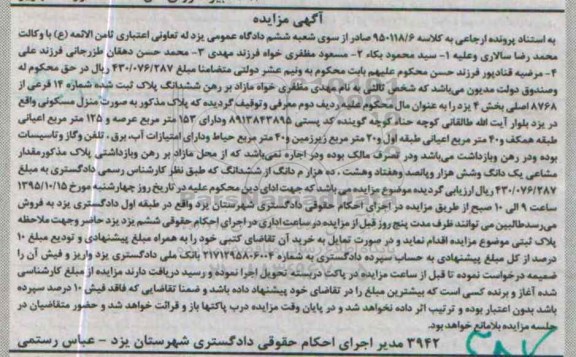 آگهی مزایده
به استناد پرونده ارجاعی به کلاسه ۹۵۰۱۱۸/۶ صادر از سوی شعبه ششم دادگاه عمومی یزد له تعاونی اعتباری ثامن الائمه (ع) با وکالت
محمد رضا سالاری وعلیه ۱- سید محمود بکاء ۲- مسعود مظفری خواه فرزند مهدی ۳- محمد حسن دهقان طزرجانی فرزند علی
۴- مرضیه قنادپور فرزند حسن محکوم علیهم بابت محکوم به ونیم عشر دولتی متضامنا مبلغ ۴۳۰/۰۷۶/۲۸۷ ریال در حق محکوم له
وصندوق دولت مدیون می‌باشد که شخص ثالثی به نام مهدی مظفری خواه مازاد بر رهن ششدانگ پلاک ثبت شده شماره ۱۲ فرعی از
۸۷۶۸ اصلی بخش ۴ یزد را به عنوان مال محکوم علیه ردیف دوم معرفی وتوقیف گردیده که پلاک مذکور به صورت منزل مسکونی واقع
در یزد بلوار آیت الله طالقانی کوچه حناء کوچه گوینده کد پستی ۸۹۱۳۸۴۳۸۹۵ ودارای ۱۵۳ متر مربع عرصه و ۱۲۵ متر مربع اعیانی
طبقه همکف و۴۰ متر مربع اعیانی طبقه اول و۲۰ متر مربع زیرزمین و۴۰ متر مربع حیاط ودارای امتیازات آب، برق ، تلفن وگاز وتاسیسات
بوده ودر رهن وبازداشت می‌باشد ودر تصرف مالک بوده ودر اجاره نمی‌باشد که از محل مازاد بر رهن وبازداشتی پلاک مذکور مقدار
مشاعی یک دانگ وشش هزار وپانصد وهفتاد وهشت ، ده هزار م دانگ از ششدانگ که طبق نظر کارشناس رسمی دادگستری به مبلغ
۴۳۰/۰۷۶/۲۸۷ ریال ارزیابی گردیده موضوع مزایده می باشد که جهت ادای دین محکوم علیه در تاریخ روز چهارشنبه مورخ ۱۳۹۵/۱۰/۱۵
ساعت ۹ الی ۱۰ صبح از طریق مزایده در اجرای احکام حقوقی دادگستری شهرستان یزد واقع در طبقه اول دادگستری یزد به فروش
می‌رسد طالبین می توانند ظرف مدت پنج روز قبل از مزایده در ساعت اداری در اجرای احکام حقوقی ششم یزد حاضر وجهت ملاحظه
پلاک ثبتی موضوع مزایده اقدام نماید و در صورت تمایل به خرید آن تقاضای کتبی خود را به همراه مبلغ پیشنهادی و تودیع مبلغ ۱۰
درصد از کل مبلغ پیشنهادی به حساب سپرده دادگستری به شماره ۲۱۷۱۲۹۵۸۰۶۰۰۴ بانک ملی دادگستری یزد واریز و فیش آن را
ضمیمه درخواست نموده تا قبل از ساعت مزایده در پاکت دربسته تحویل اجرا نموده و رسید دریافت دارند مزایده از مبلغ کارشناسی
شده آغاز و برنده کسی است که بیشترین مبلغ را در تقاضای خود پیشنهاد داده باشد و ضمنا تقاضایی که فاقد فیش ۱۰ درصد سپرده
باشد بدون اعتبار بوده و ترتیب اثر داده نخواهد شد و در پایان وقت مزایده درب پاکتها باز و قرائت خواهد شد و حضور متقاضیان در
جلسه مزایده بلامانع خواهد بود.
۳۹۴۲ مدیر اجرای احکام حقوقی دادگستری شهرستان یزد - عباس رستمی